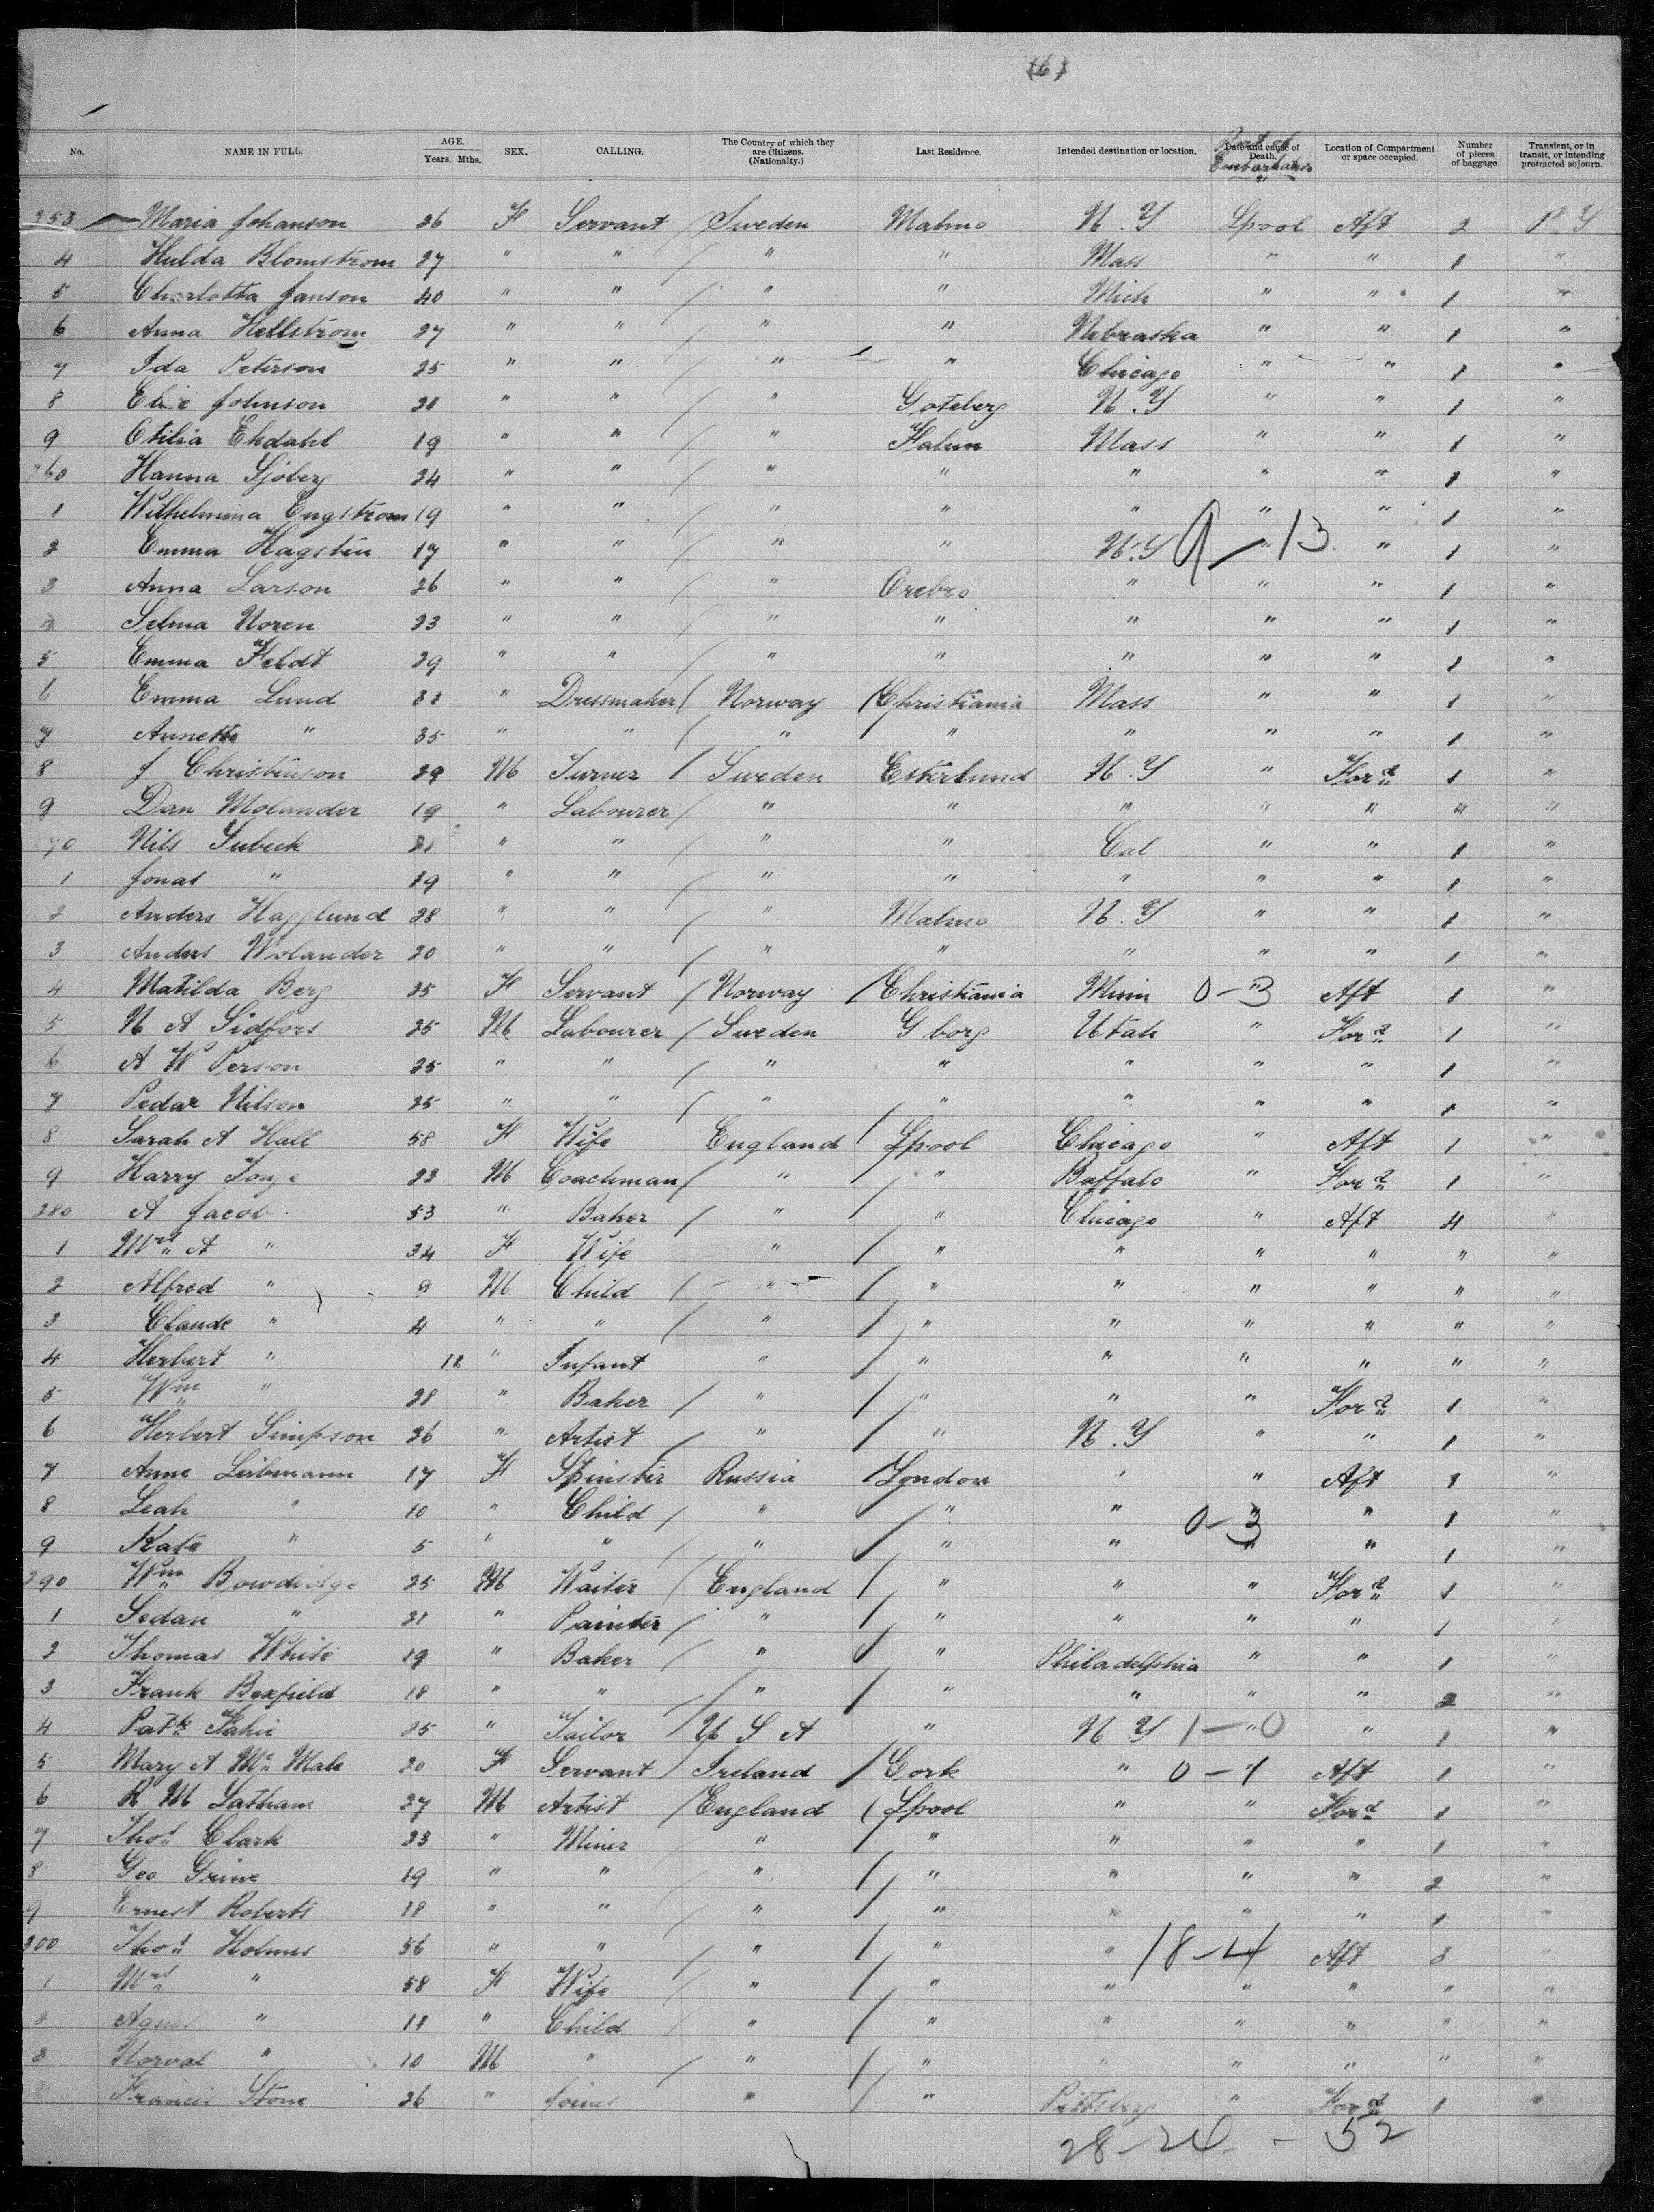 (6)
No. NAME IN FULL. AGE. Years. Mths. SEX. CALLING. The Country of which they are Citizens. (Nationalty.) Last Residence. Intended destination or location. Date and cause of Death. Port of Embarkation Location of Compartment or space occupied. Number of pieces of baggage. Transient, or in transit, or intending protracted sojourn.
253 Maria Johanson 26 F Servant / Sweden Malmo N.Y Lpool Aft 2 P.Y
4 Hulda Blomstrom 27 " " / " " Mass " " 1 "
5 Charlotta Janson 40 " " / " " Mich " " 1 "
6 Anna Hellstrom 27 " " / " " Nebraska " " 1 "
7 Ida Peterson 25 " " / " " Chicago " " 1 "
8 Johnson " " / " Goteberg N.Y " " 1 "
9 Otilia Ekdahl 19 " " / " Falun Mass " " 1 "
260 Hanna Sjoberg 24 " " / " " " " " 1 "
1 Wilhelmina Engstrom 19 " " / " " " " " 1 "
2 Emma Hagsten 17 " " / " " N.Y 9-13 " " 1 "
3 Anna Larson 26 " " / " Orebro " " " 1 "
4 Selma Noren 23 " " / " " " " " 1 "
5 Emma Feldt 29 " " / " " " " " 1 "
6 Emma Lund 31 " Dressmaker / Norway / Christiania Mass " " 1 "
7 Annette " 35 " " / " " " " " 1 "
8 J Christinson 29 M Turner / Sweden Esterlund N.Y " Ford 1 "
9 Dan Molander 19 " Labourer / " " " " " " "
70 Nils Subeck 21 " " / " " Cal " " 1 "
1 Jonas " 19 " " / " " " " " 1 "
2 Anders Hagglund 28 " " / " Malmo N.Y " " 1 "
3 Anders Wolander 20 " " / " " " " " 1 "
4 Matilda Berg 25 F Servant / Norway / Christiania Minn 0-3 " Aft 1 "
5 N A Sidfors 25 M Labourer / Sweden G borg Utah " Ford 1 "
6 A W Person 25 " " / " " " " " 1 "
7 Pedar Nilson 25 " " / " " " " " 1 "
8 Sarah A Hall 58 F Wife England / Lpool Chicago " Aft 1 "
9 Harry 23 M Coachman / " / " Buffalo " Ford 1 "
280 A Jacob 53 " Baker / " / " Chicago " Aft 4 "
1 Mrs A " 34 F Wife " / " " " " " "
2 Alfred " 9 M Child / " / " " " " " "
3 Claude " 4 " " / " / " " " " " "
4 Herbert " 11 " Infant " / " " " " " "
5 Wm " 28 " Baker / " / " " " Ford 1 "
6 Herbert Simpson 26 " Artist / " / " N.Y " " 1 "
7 Anne Leibmann 17 F Spinster Russia / London " " Aft 1 "
8 Leah " 10 " Child / " / " " " " 1 "
9 Kate " 5 " " / " / " " 0-3 " " 1 "
290 Wm Bowdidge 25 M Waiter / England / " " " Ford 1 "
1 Sedan " 21 " Painter / " / " " " " 1 "
2 Thomas White 19 " Baker / " / " Philadelphia " " 1 "
3 Frank Boxfield 18 " " / " / " " " " 2 "
4 Patk Fahie 25 " Tailor / U S A " N Y 1-0 " " 1 "
5 Mary A Mc 20 F Servant / Ireland / Cork " 0-1 Aft 1 "
6 R M Latham 27 M Artist / England / Lpool " " Ford 1 "
7 Thos Clark 23 " Miner " / " " " " 1 "
8 Geo Grine 19 " " " / " " " " 2 "
9 Ernest Roberts 18 " " / " / " " " " 1 "
300 Thos Holmes 56 " " / " / " " 18-4 Aft 3 "
1 Mrs " 58 F Wife / " / " " " " " "
2 Agnes " 11 " Child / " / " " " " " "
3 Norval " 10 M " / " / " " " " " "
Francis Stone 26 " Joiner " / " Pittsberg " Ford 1 "
28-24 - 52